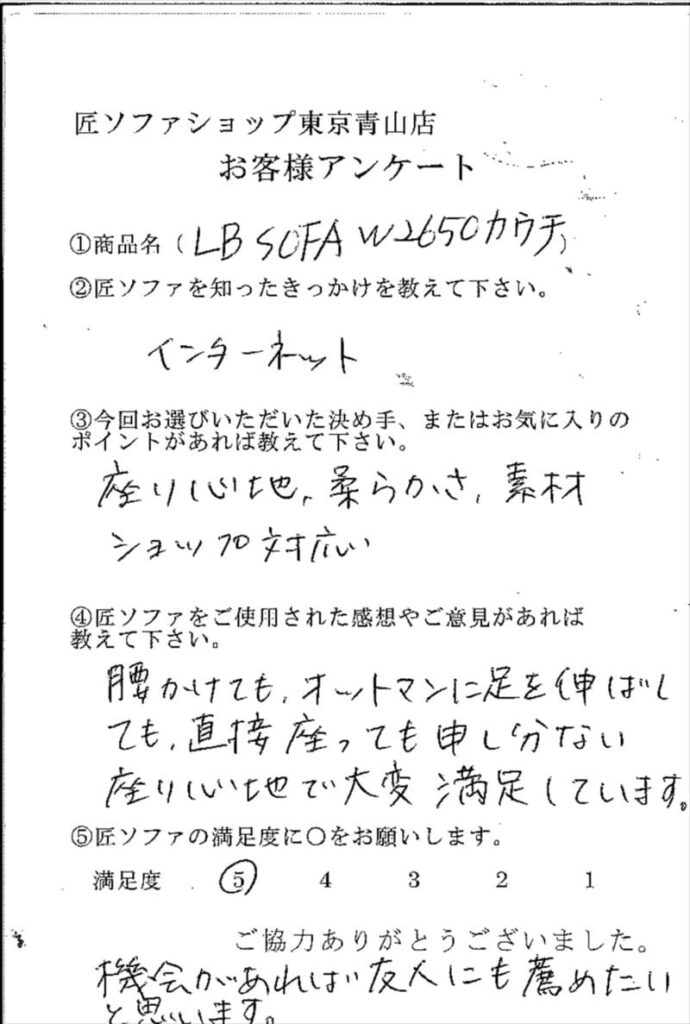 匠ソファショップ東京青山店
お客様アンケート
①商品名（LB SOFA W2650カウチ）
②匠ソファを知ったきっかけを教えて下さい。
インターネット
③今回お選びいただいた決め手、またはお気に入りの
ポイントがあれば教えて下さい。
座り心地、柔らかさ、素材
ショップ対応い
④匠ソファをご使用された感想やご意見があれば
教えて下さい。
腰かけても、オットマンに足を伸ばし
ても、直接座っても申し分ない
座り心地で大変満足しています。
⑤匠ソファの満足度に〇をお願いします。
満足度 5 4 3 2 1
ご協力ありがとうございました。
機会があれば友人にも薦めたい
と思います。